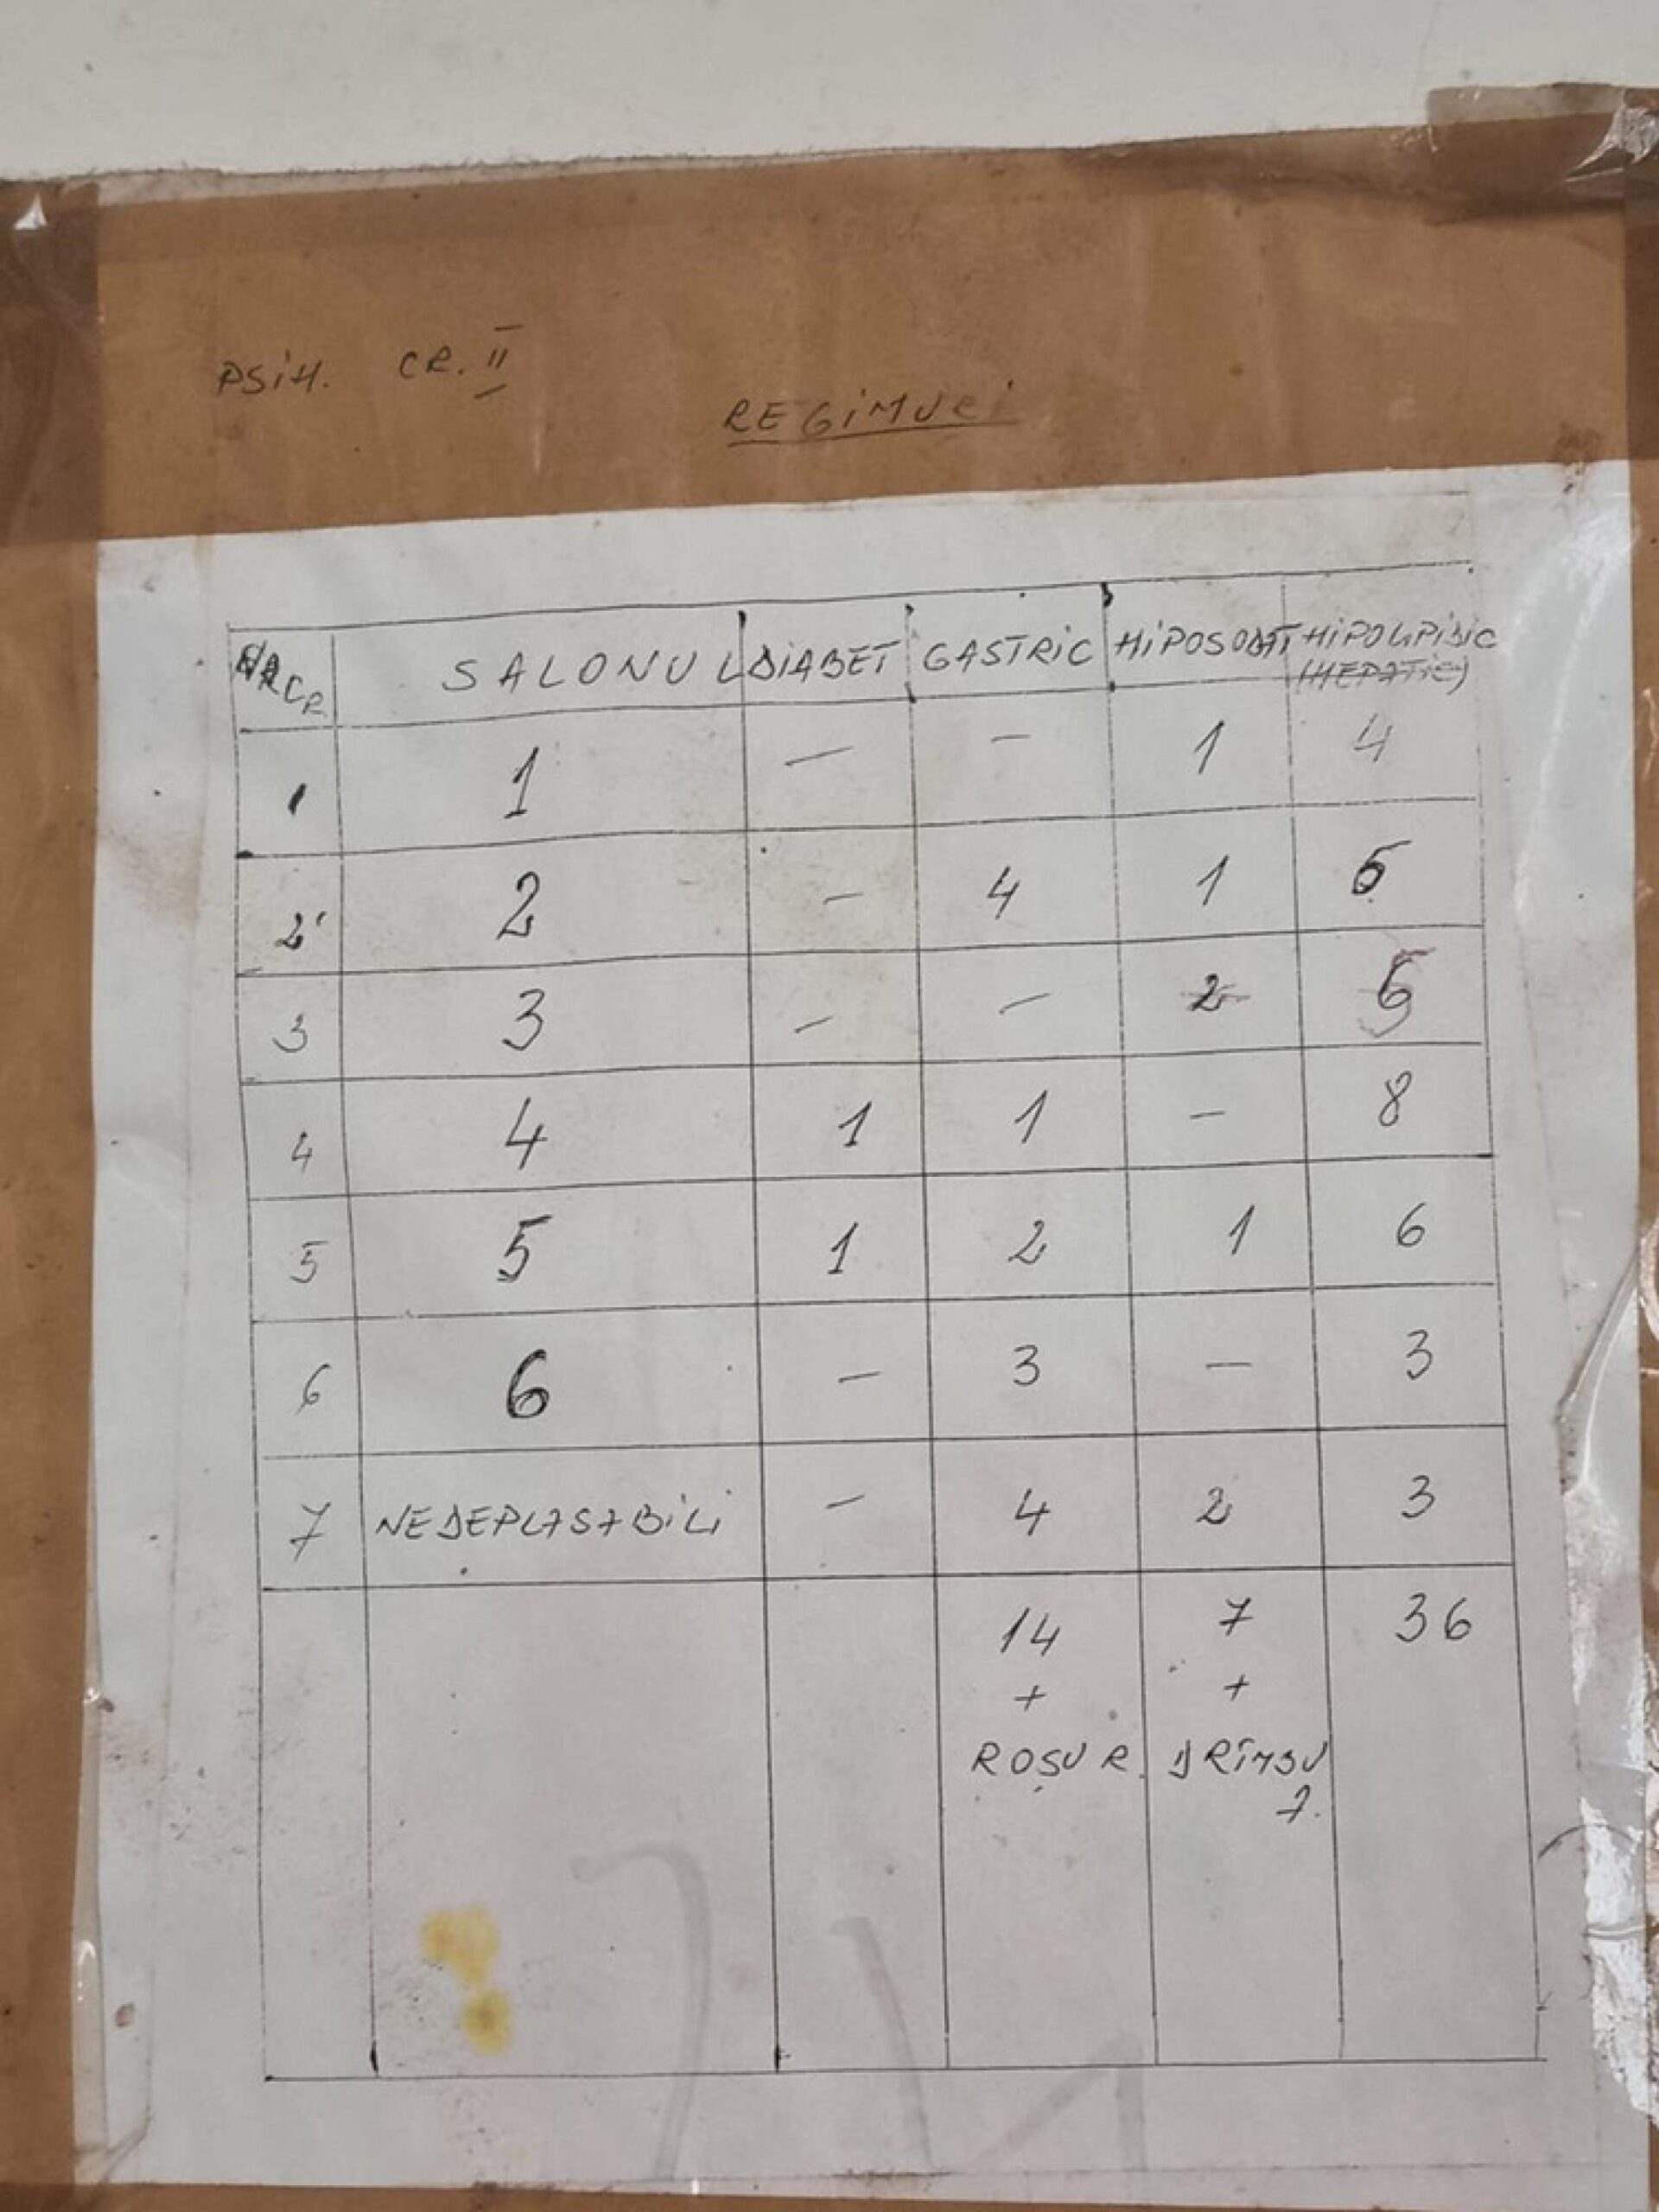 PSiH. CR. II
REGiMURi
NR CR SALONUL DiABET GASTRiC HiPOSODAT HiPOLiPiDiC
(HEPATiC)
1 1 — — 1 4
2 2 — 4 1 6
3 3 — — 2
4 4 1 1 — 8
5 5 1 2 1 6
6 6 — 3 — 3
7 NEDEPLASABiLi — 4 2 3
14 7 36
+ +
ROȘU R. DRÎMBU